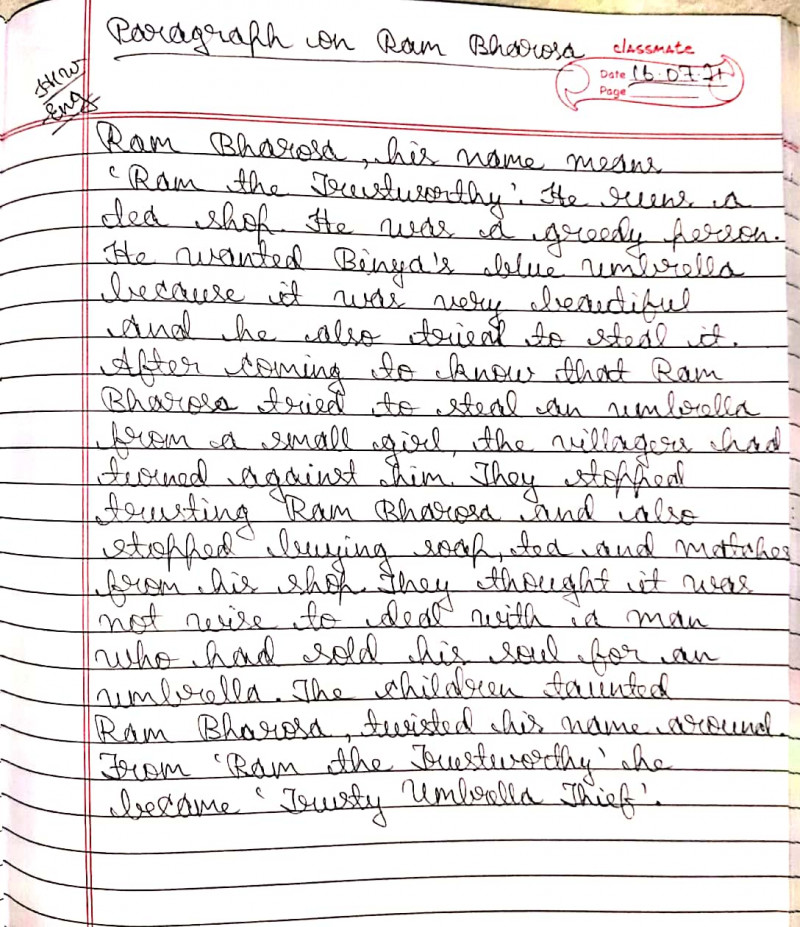 Paragraph on Ram Bharosa
classmate
Date 16.07.21
Page
H.W
Eng
Ram Bharosa, his name means
'Ram the Trustworthy'. He runs a
tea shop. He was a greedy person.
He wanted Binya's blue umbrella
because it was very beautiful
and he also tried to steal it.
After coming to know that Ram
Bharosa tried to steal an umbrella
from a small girl, the villagers had
turned against him. They stopped
trusting Ram Bharosa and also
stopped buying soap, tea and matches
from his shop. They thought it was
not wise to deal with a man
who had sold his soul for an
umbrella. The children taunted
Ram Bharosa, twisted his name around.
From 'Ram the Trustworthy' he
became 'Trusty Umbrella Thief'.